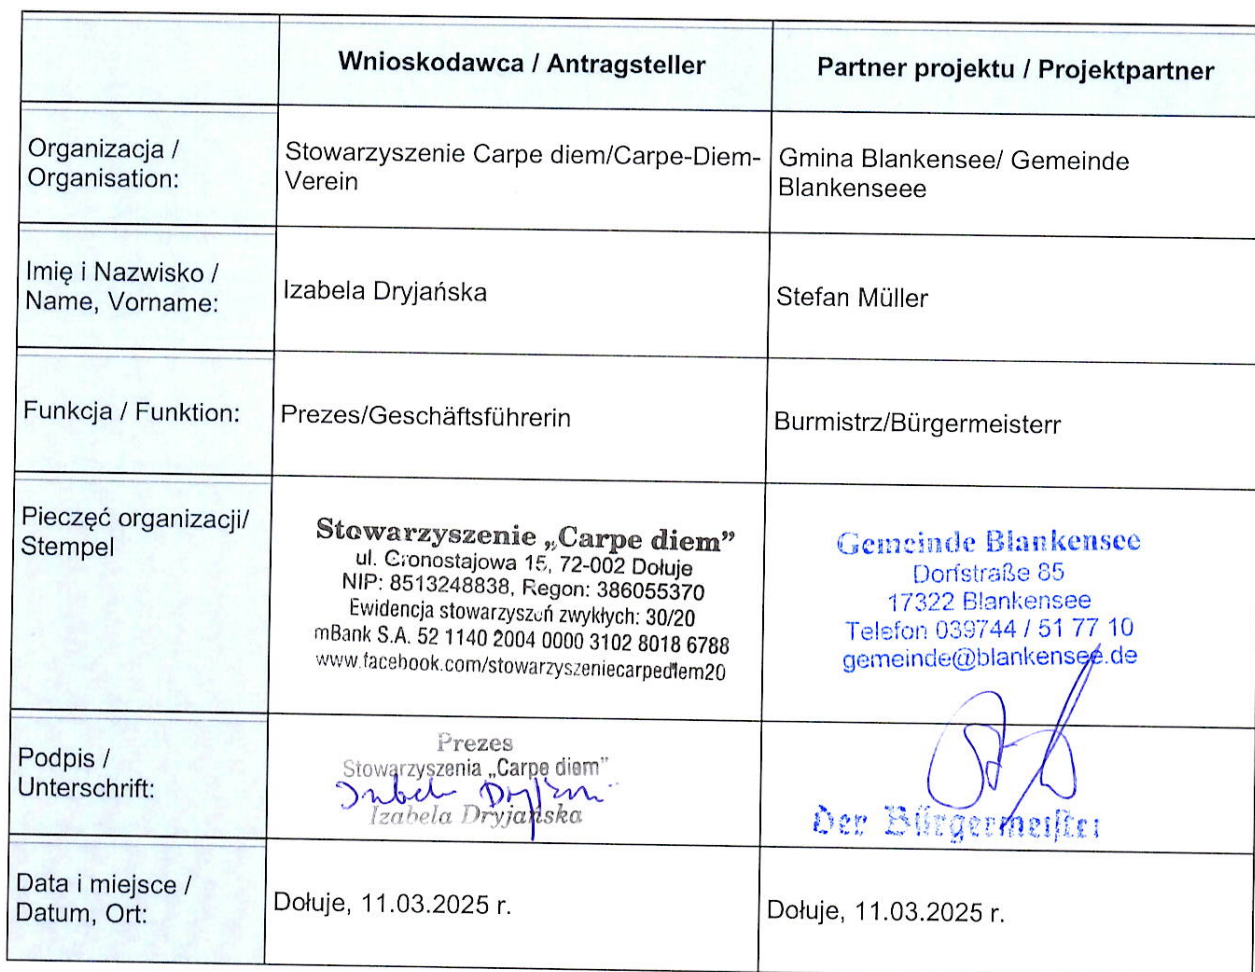 Wnioskodawca / Antragsteller
Partner projektu / Projektpartner
Organizacja /
Organisation:
Stowarzyszenie Carpe diem/Carpe-Diem-
Verein
Gmina Blankensee/ Gemeinde
Blankenseee
Imię i Nazwisko /
Name, Vorname:
Izabela Dryjańska
Stefan Müller
Funkcja / Funktion:
Prezes/Geschäftsführerin
Burmistrz/Bürgermeisterr
Pieczęć organizacji/
Stempel
Stowarzyszenie „Carpe diem”
ul. Gronostajowa 15, 72-002 Dołuje
NIP: 8513248838, Regon: 386055370
Ewidencja stowarzyszeń zwykłych: 30/20
mBank S.A. 52 1140 2004 0000 3102 8018 6788
www.facebook.com/stowarzyszeniecarpediem20
Gemeinde Blankensee
Dorfstraße 85
17322 Blankensee
Telefon 039744 / 51 77 10
gemeinde@blankensee.de
Podpis /
Unterschrift:
Prezes
Stowarzyszenia „Carpe diem”
Izabela Dryjańska
Der Bürgermeister
Data i miejsce /
Datum, Ort:
Dołuje, 11.03.2025 r.
Dołuje, 11.03.2025 r.